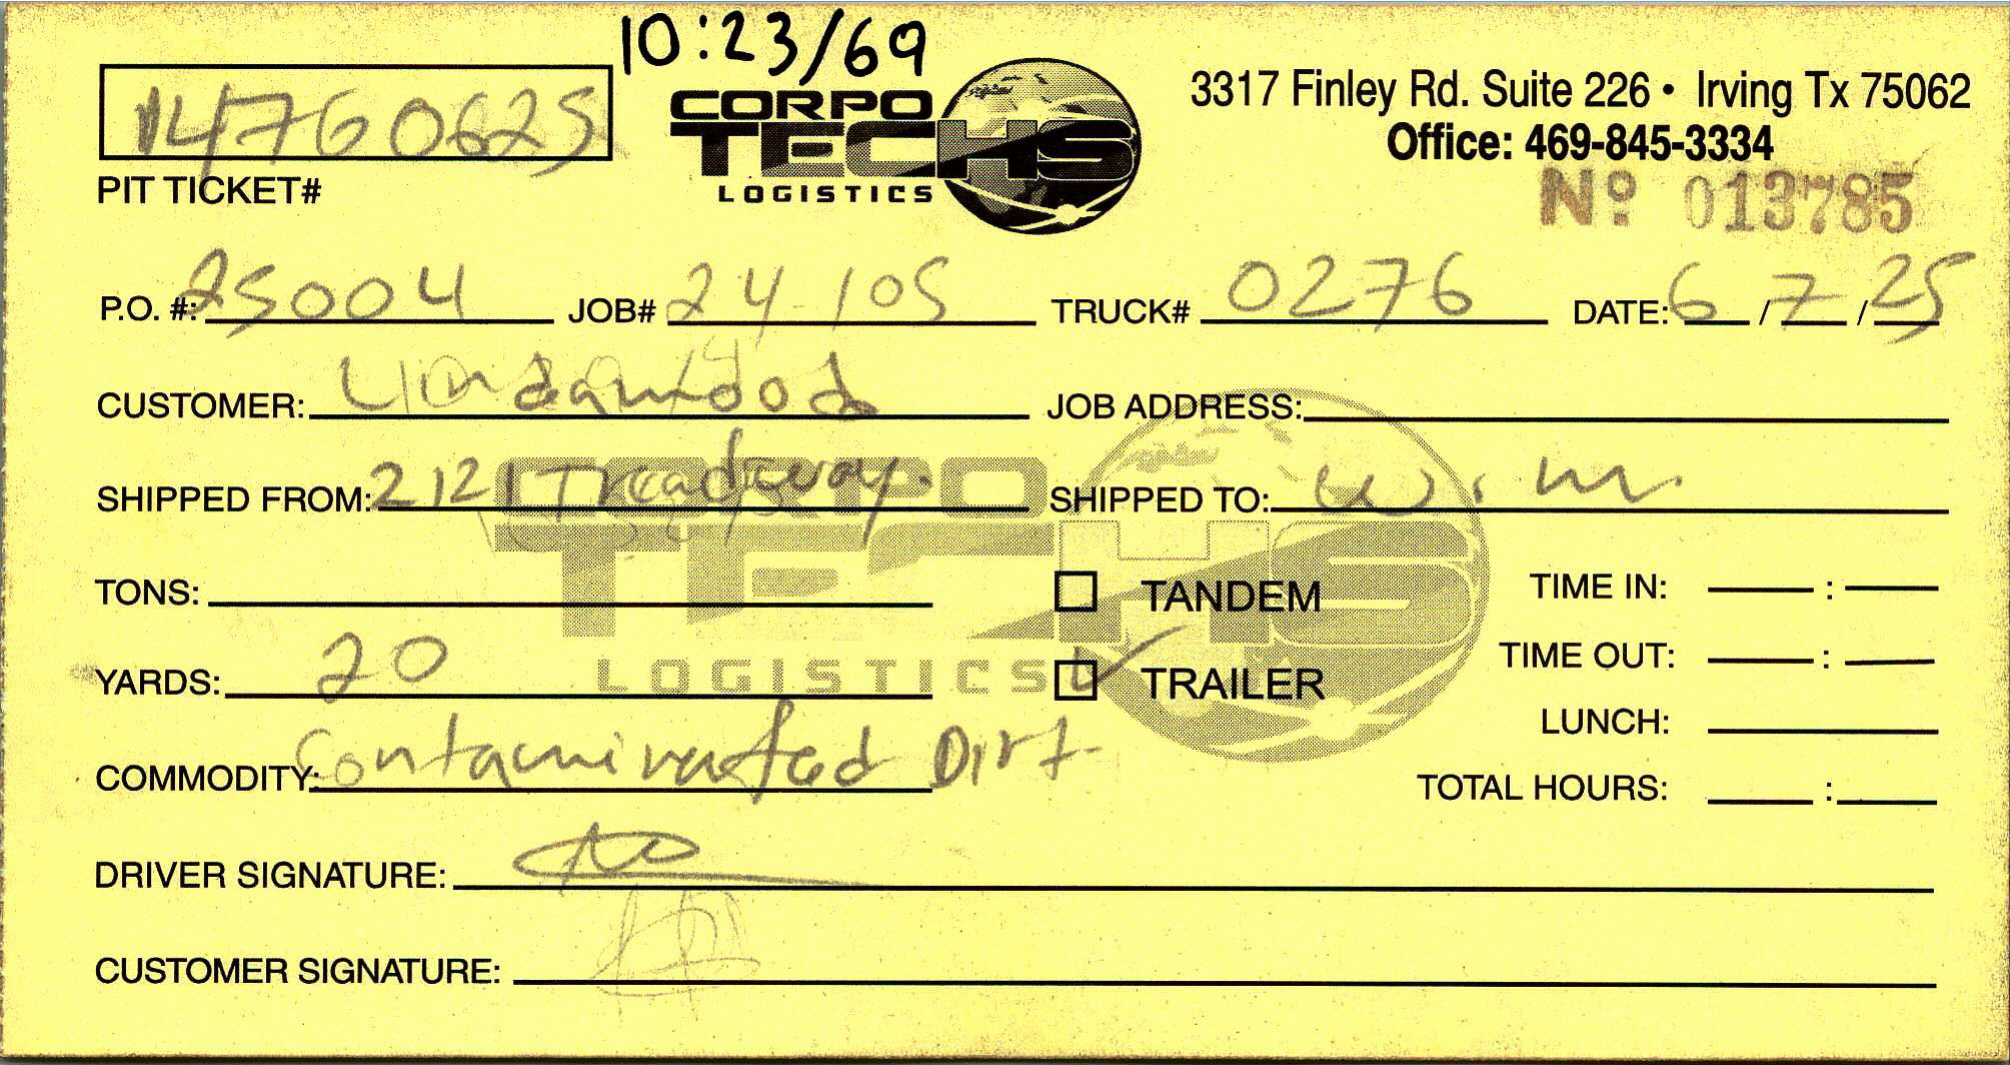 10:23/69
14760625
PIT TICKET#
CORPO
TECHS
LOGISTICS
3317 Finley Rd. Suite 226 • Irving Tx 75062
Office: 469-845-3334
Nº 013785
P.O. #: 25004 JOB# 24-105 TRUCK# 0276 DATE: 6/7/25
CUSTOMER: Lindamood JOB ADDRESS:
SHIPPED FROM: 2121 Treadway. SHIPPED TO: w.m.
TONS: TANDEM TIME IN: :
YARDS: 20 TRAILER TIME OUT: :
LUNCH:
COMMODITY: Contaminated Dirt TOTAL HOURS: :
DRIVER SIGNATURE:
CUSTOMER SIGNATURE:
CORPO
TECHS
LOGISTICS